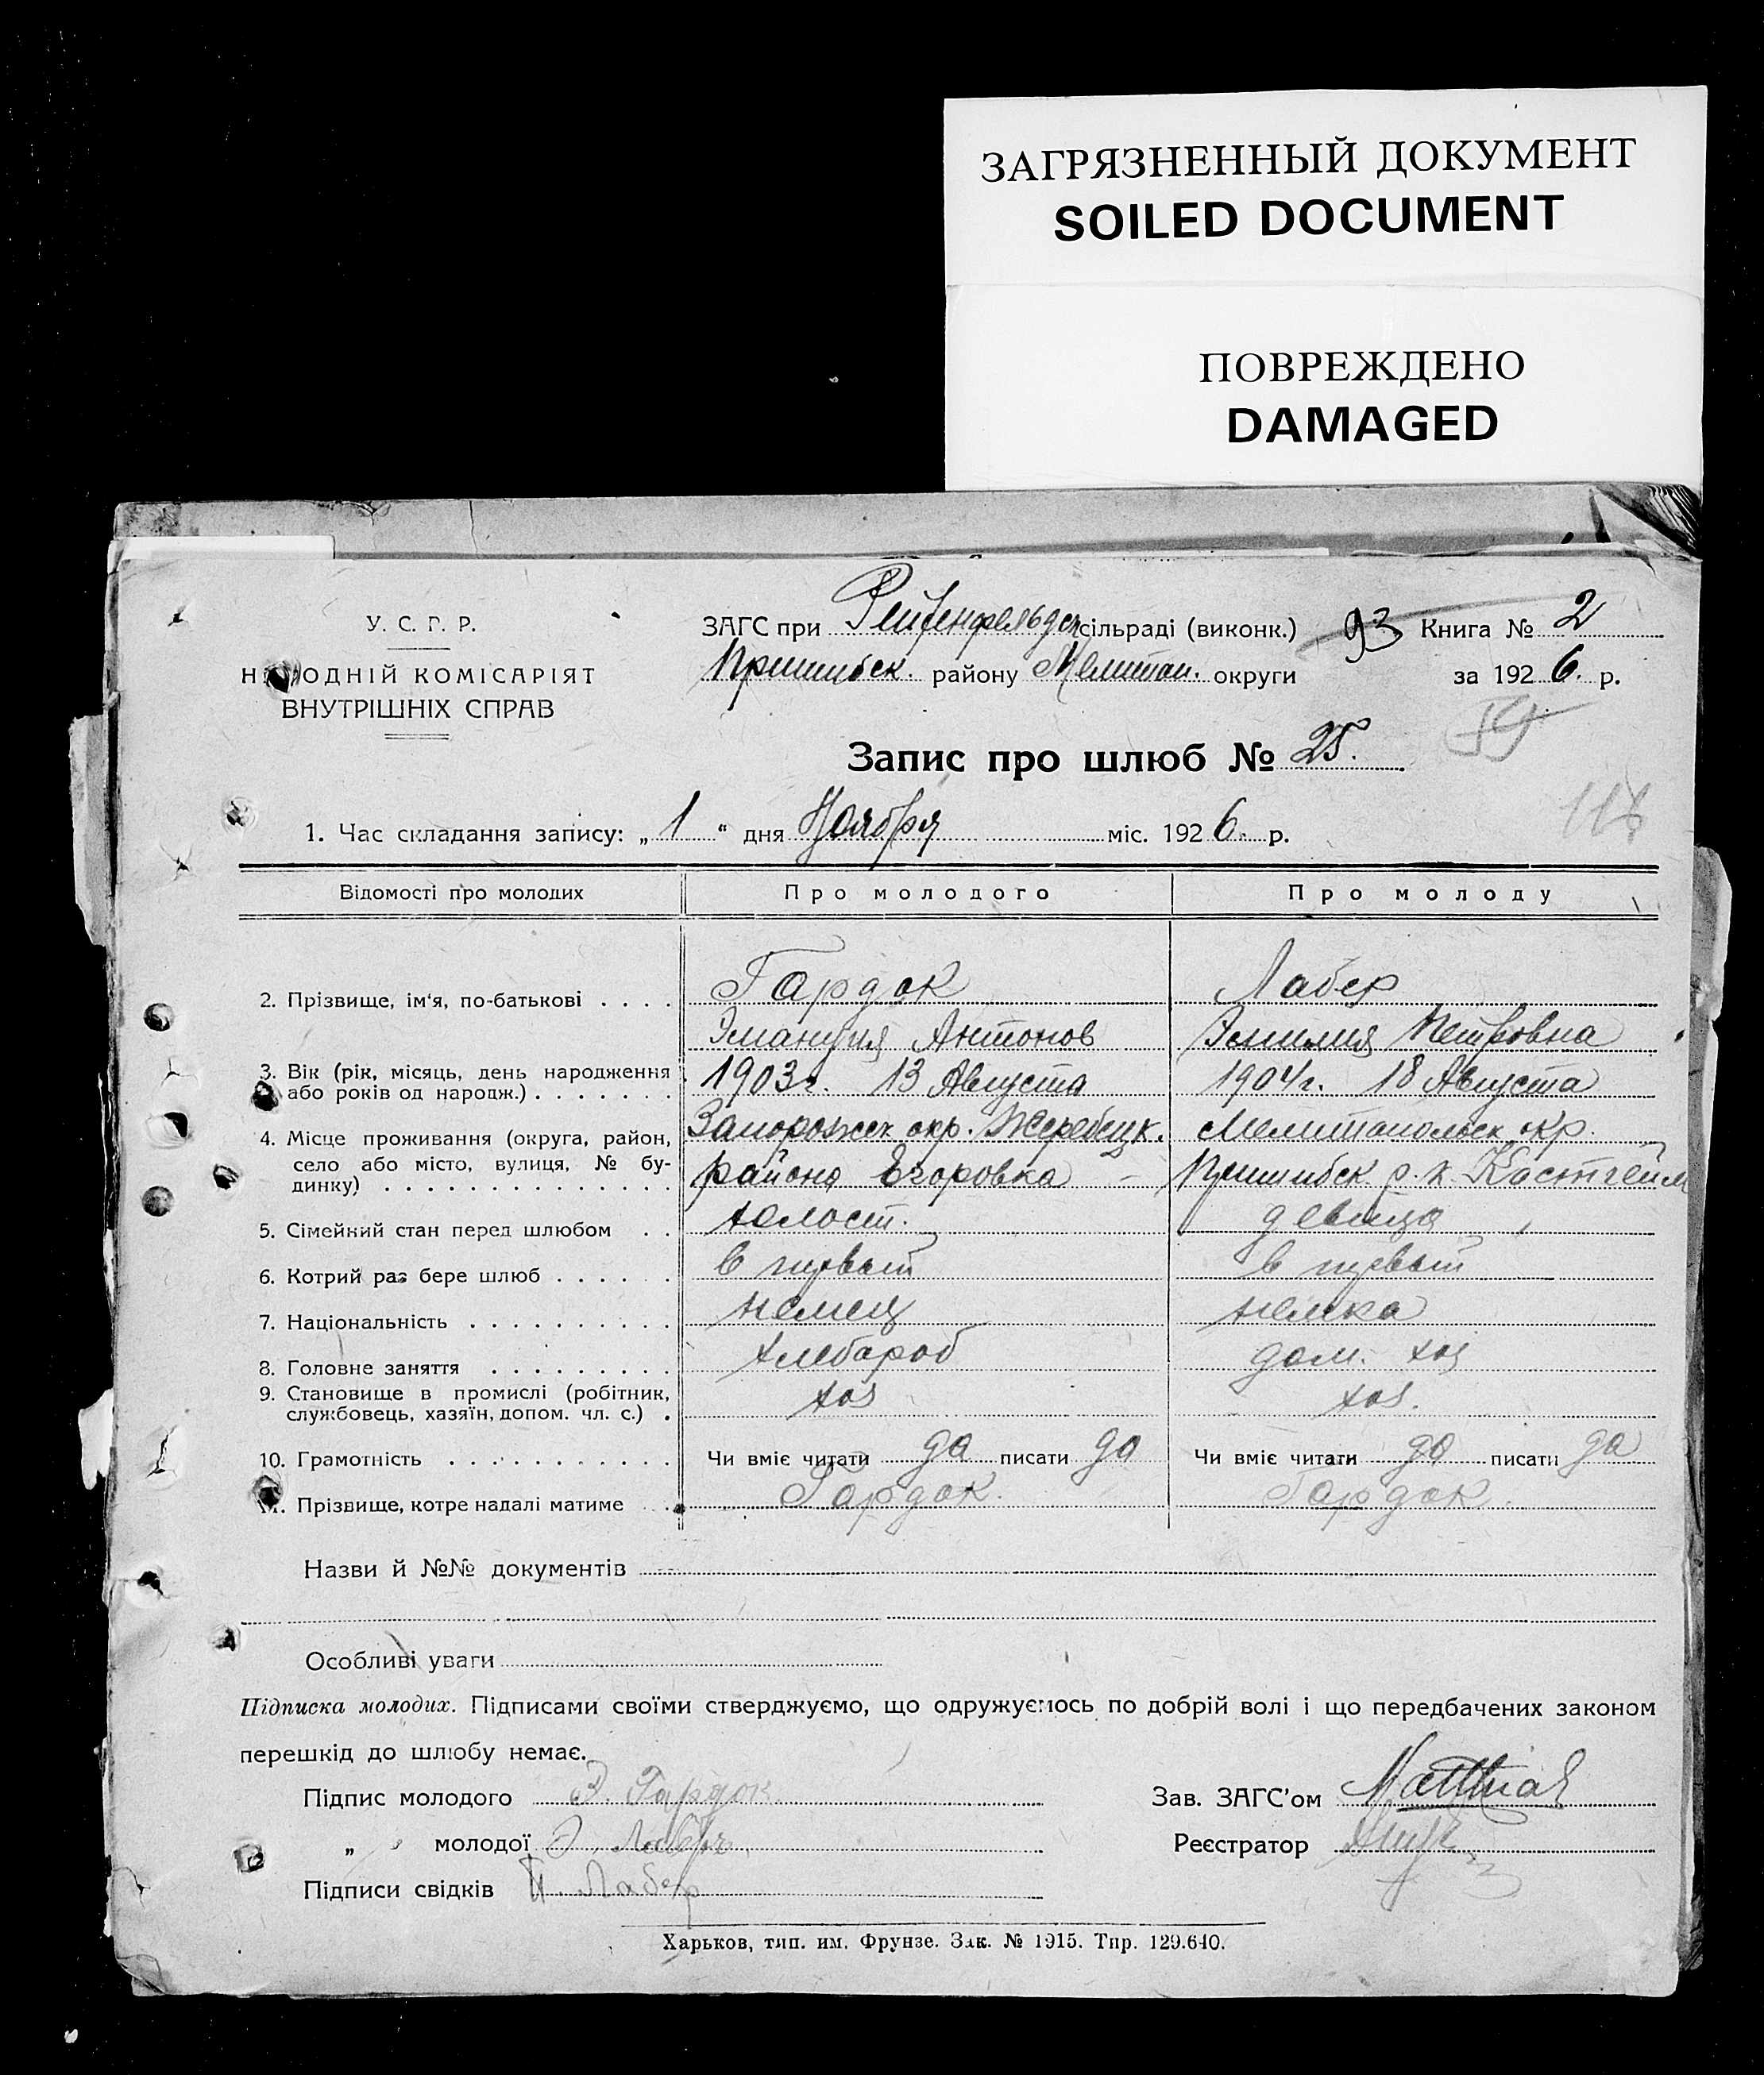 ЗАГРЯЗНЕННЫЙ ДОКУМЕНТ
SOILED DOCUMENT
ПОВРЕЖДЕНО
DAMAGED
У. С. Г. Р.
НАРОДНІЙ КОМІСАРІЯТ
ВНУТРІШНІХ СПРАВ
ЗАГС при Рейхенфельдск сільраді (виконк.) 93 Книга № 2
Пришибск. району Мелитоп. округи за 1926. р.
59
Запис про шлюб № 25.
118
1. Час складання запису: „ 1 “ дня Ноября міс. 1926. р.
Відомості про молодих Про молодого Про молоду
2. Прізвище, ім'я, по-батькові . . . . Гардок Лабер
Антонов Эмилия Петровна
3. Вік (рік, місяць, день народження або років од народж.) . . . . . . . 1903г. 13 Августа 1904г. 18 Августа
4. Місце проживання (округа, район, Запорожск окр. Жеребецк. Мелитопольск окр.
село або місто, вулиця, № бу- района Егоровка Пришибск р. к. Костгейм
динку) . . . . . . . . . . . . . . .
5. Сімейний стан перед шлюбом . . холост. девица
6. Котрий раз бере шлюб . . . . . . в первый в первый
7. Національність . . . . . . . . . . немец немка
8. Головне заняття . . . . . . . . . хлебороб дом. хоз
9. Становище в промислі (робітник, службовець, хазяїн, допом. чл. с.) . хоз хоз.
10. Грамотність . . . . . . . . . . . Чи вміє читати да писати да Чи вміє читати да писати да
11. Прізвище, котре надалі матиме . . Гардок. Гардок.
Назви й №№ документів
Особливі уваги
Підписка молодих. Підписами своїми стверджуємо, що одружуємось по добрій волі і що передбачених законом
перешкід до шлюбу немає.
Підпис молодого Э. Гардок Зав. ЗАГС'ом Matthias
„ молодої Э. Лабер Реєстратор
Підписи свідків П. Лабер
Харьков, тип. им. Фрунзе. Зак. № 1915. Тир. 129.640.